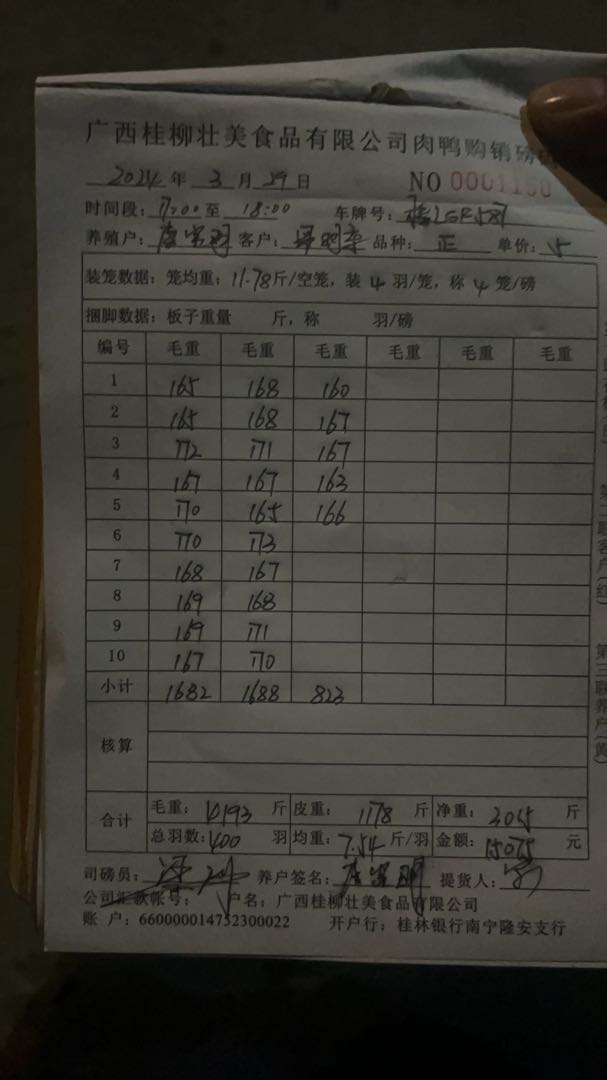 广西桂柳壮美食品有限公司肉鸭购销磅码
2024年 3月 29日 NO 0001150
时间段: 17:00至 18:00 车牌号:
养殖户: 客户: 品种: 正 单价: 5
装笼数据: 笼均重: 11.78斤/空笼, 装 4 羽/笼, 称 4 笼/磅
捆脚数据: 板子重量 斤, 称 羽/磅
编号 毛重 毛重 毛重 毛重 毛重 毛重
1 165 168 160
2 165 168 167
3 172 171 167
4 167 167 163
5 170 165 166
6 170 173
7 168 167
8 169 168
9 169 171
10 167 170
小计 1682 1688 823
核算
合计 毛重: 4193 斤 皮重: 1178 斤 净重: 3015 斤
总羽数: 400 羽 均重: 7.54 斤/羽 金额: 15075 元
司磅员: 养户签名: 提货人:
公司汇款帐号: 户名: 广西桂柳壮美食品有限公司
账 户: 660000014752300022 开户行: 桂林银行南宁隆安支行
第二联客户(红) 第三联养户(黄)